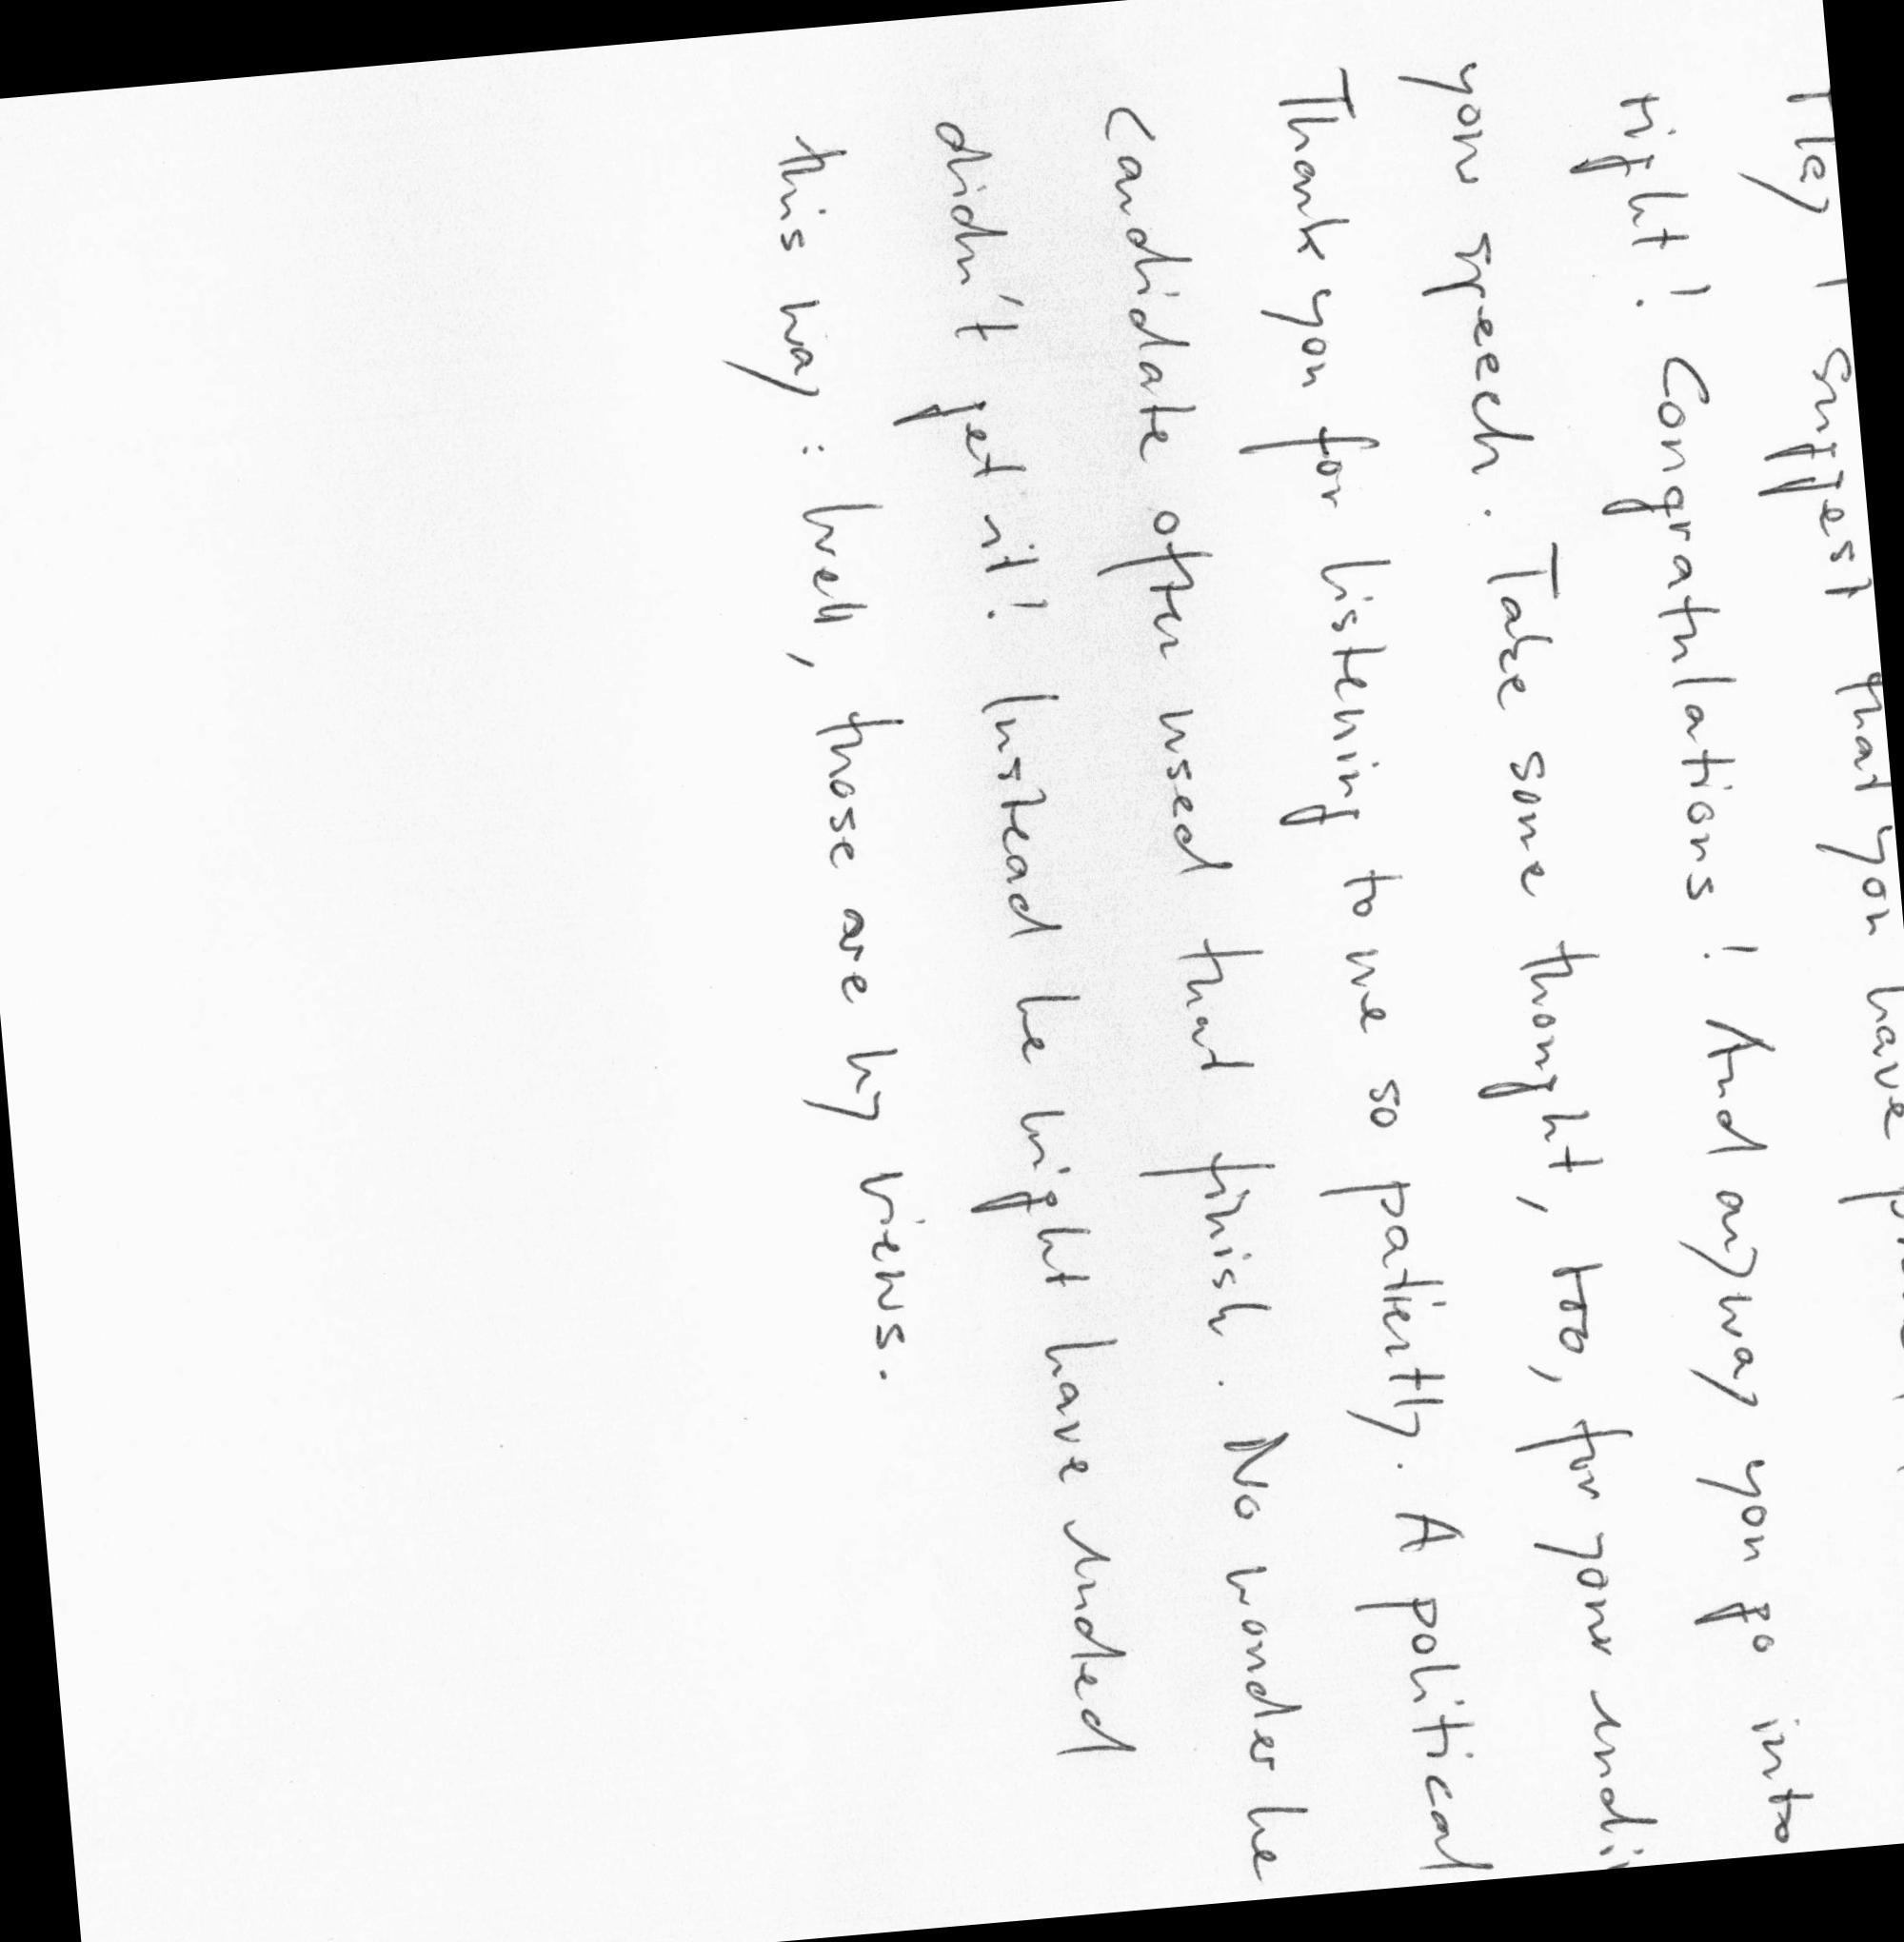 May I suggest that you have
right! Congratulations! And anyway you go into
your speech. Take some thought, too, for your
Thank you for listening to me so patiently. A political
candidate often used that finish. No wonder he
didn't get it! Instead he might have ended
this way: Well, those are my views.